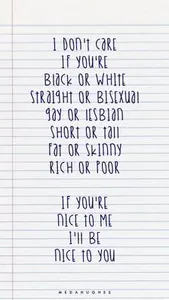 I DON'T CARE
IF YOU'RE
BLACK OR WHITE
STRAIGHT OR BISEXUAL
GAY OR LESBIAN
SHORT OR TALL
FAT OR SKINNY
RICH OR POOR
IF YOU'RE
NICE TO ME
I'LL BE
NICE TO YOU
MEDAHUGHES